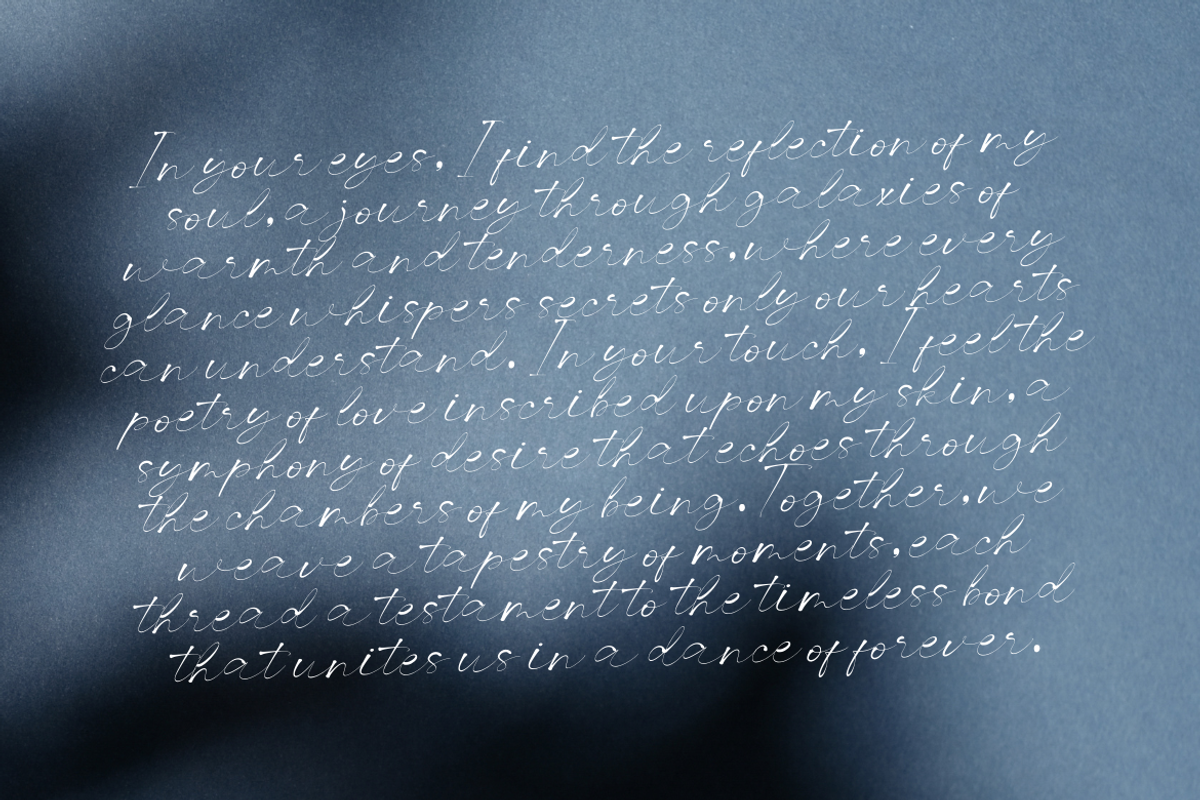 In your eyes, I find the reflection of my
soul, a journey through galaxies of
warmth and tenderness, where every
glance whispers secrets only our hearts
can understand. In your touch, I feel the
poetry of love inscribed upon my skin, a
symphony of desire that echoes through
the chambers of my being. Together, we
weave a tapestry of moments, each
thread a testament to the timeless bond
that unites us in a dance of forever.